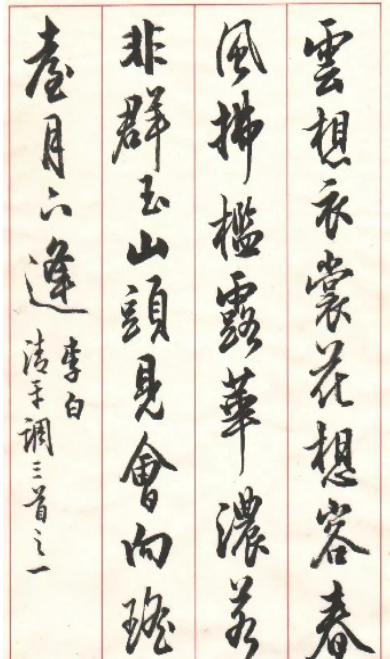 雲想衣裳花想容春
風拂檻露華濃若
非群玉山頭見會向瑤
臺月下逢
李白
清平調三首之一